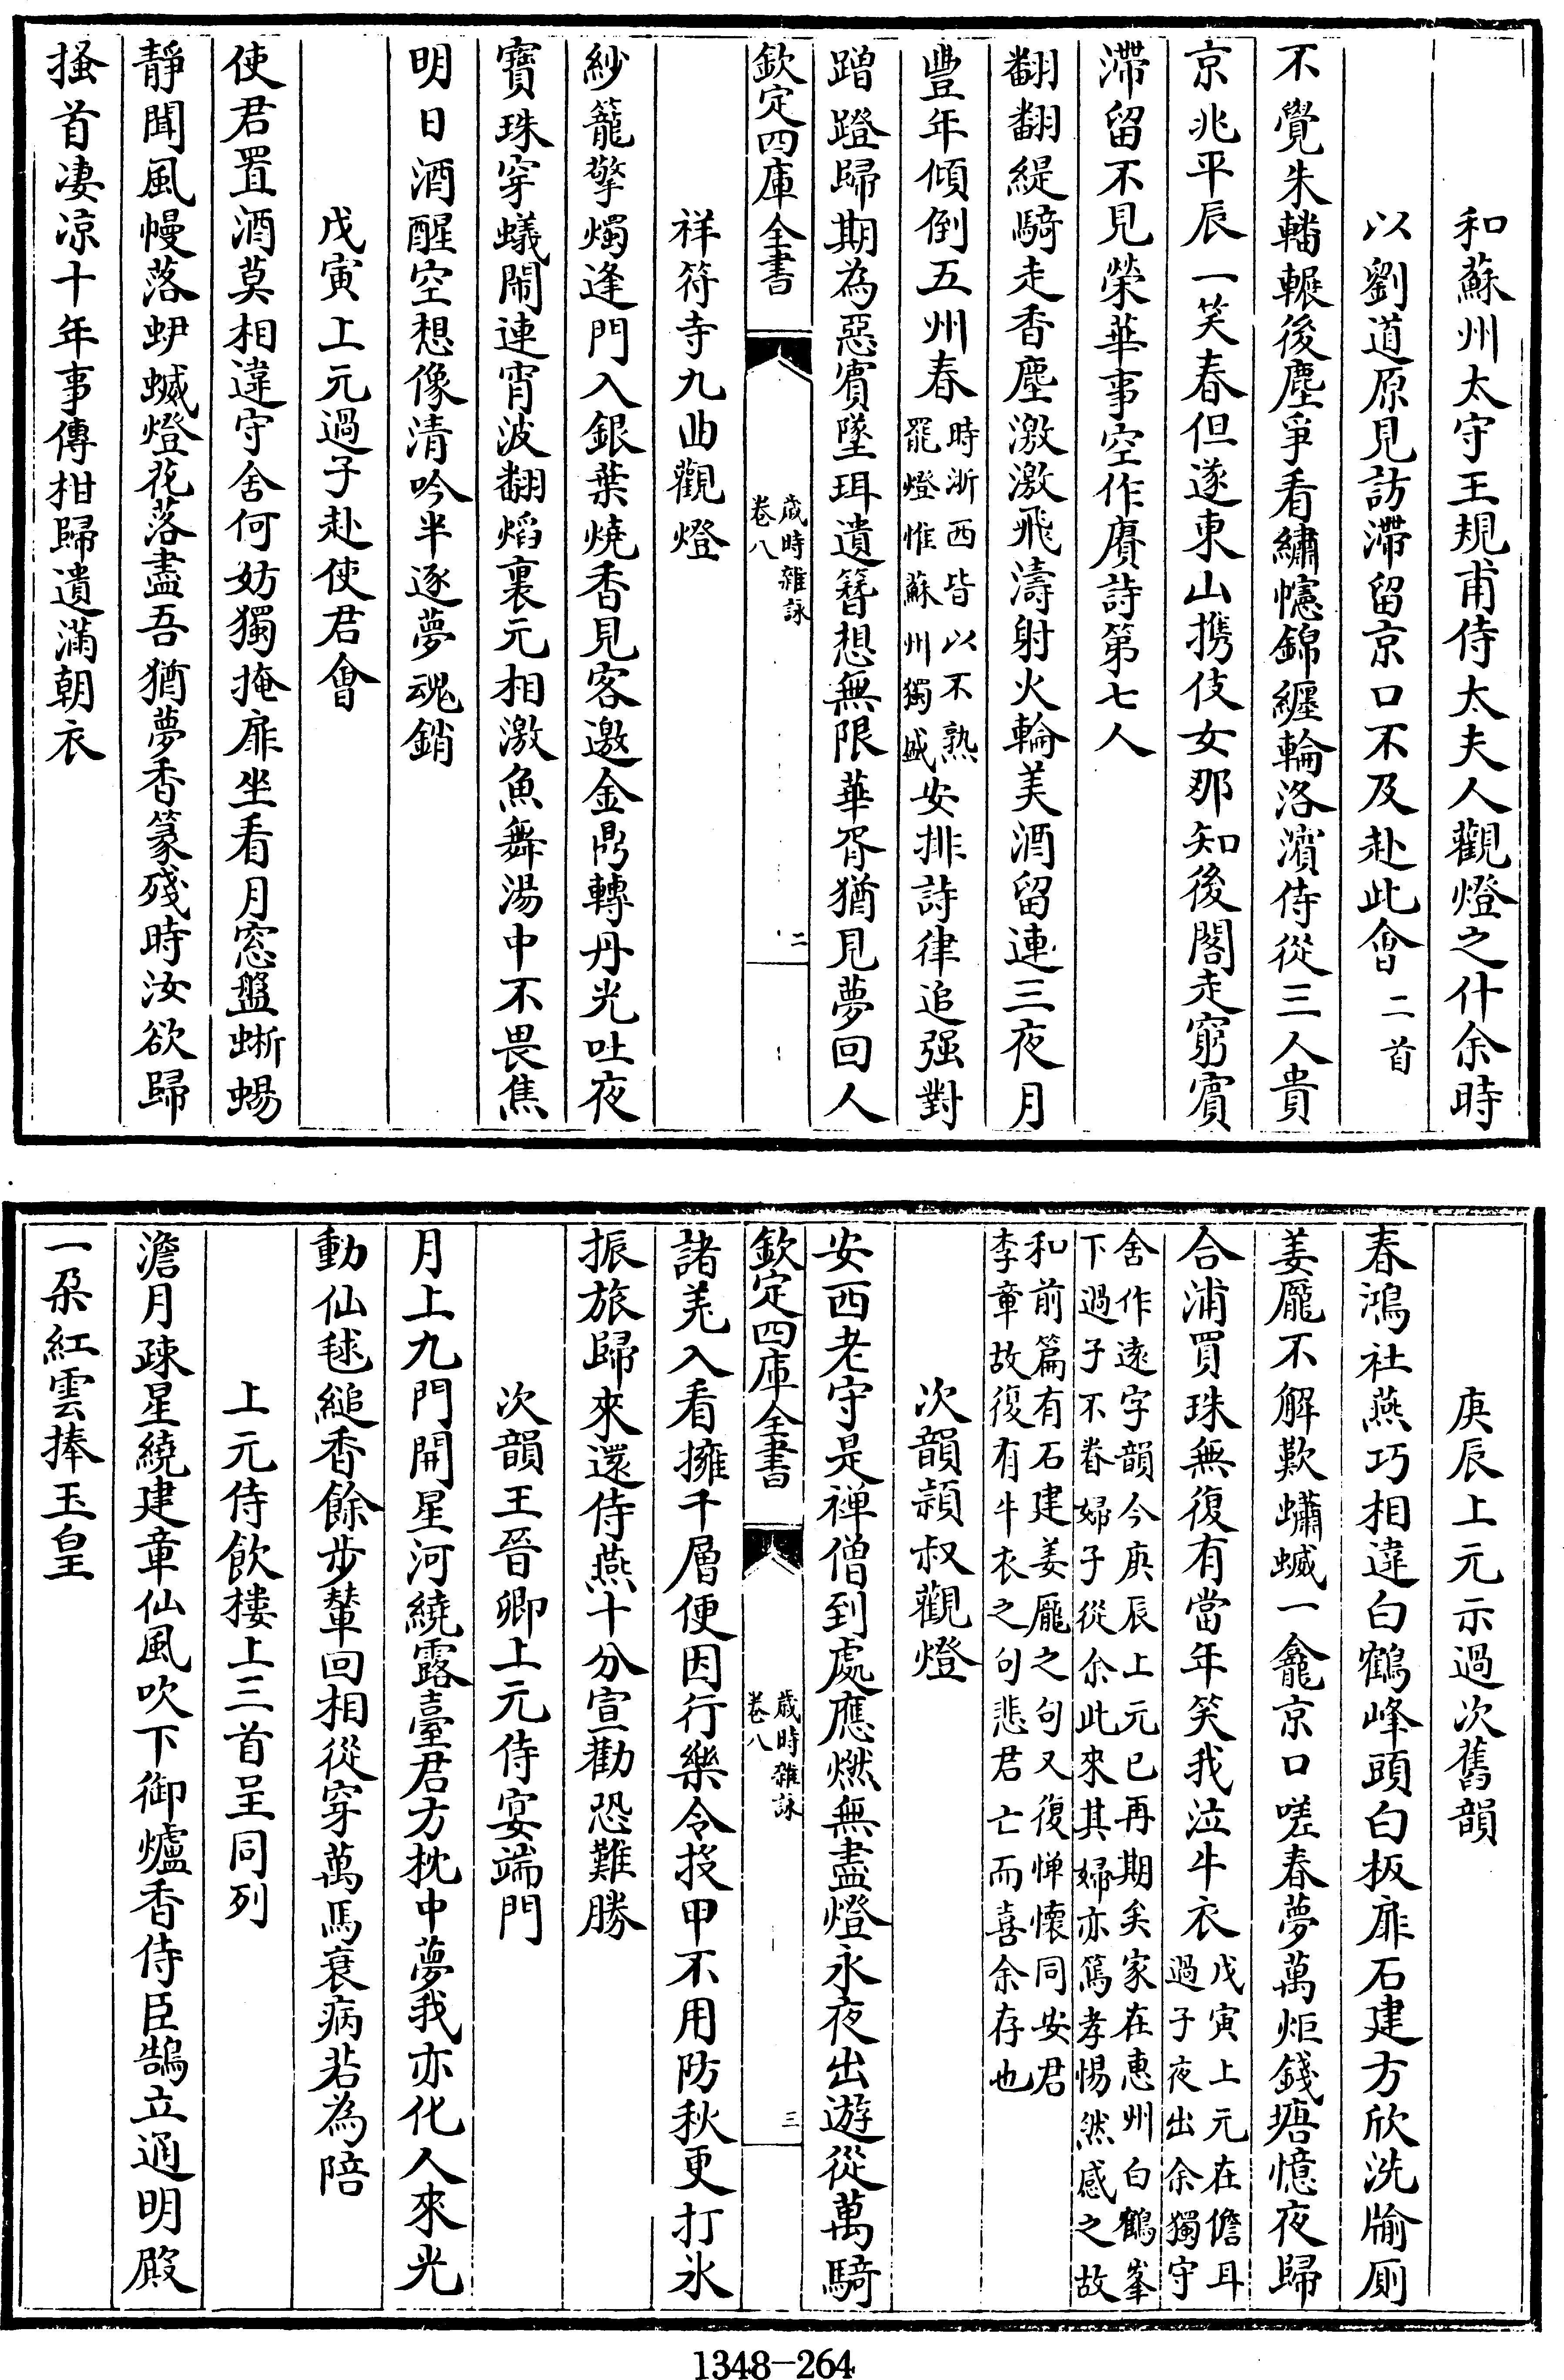 和蘇州太守王規甫侍太夫人觀燈之什余時
以劉道原見訪滯留京口不及赴此會二首
不覺朱轓輾後塵爭看繡幰錦纏輪洛濱侍從三人貴
京兆平辰一笑春但遂東山携伎女那知後閣走窮賓
滯留不見榮華事空作賡詩第七人
翻翻緹騎走香塵激激飛濤射火輪美酒留連三夜月
豐年傾倒五州春時浙西皆以不熟罷燈惟蘇州獨盛安排詩律追强對
蹭蹬歸期為惡賓墜珥遺簪想無限華胥猶見夢回人
欽定四庫全書
歲時雜詠
卷八
二
祥符寺九曲觀燈
紗籠擎燭逢門入銀葉燒香見客邀金鼎轉丹光吐夜
寶珠穿蟻鬧連宵波翻焰裏元相激魚舞湯中不畏焦
明日酒醒空想像清吟半逐夢魂銷
戊寅上元過子赴使君會
使君置酒莫相違守舍何妨獨掩扉坐看月窓盤蜥蜴
靜聞風幔落蛜蝛燈花落盡吾猶夢香篆殘時汝欲歸
搔首凄凉十年事傳柑歸遺滿朝衣
庚辰上元示過次舊韻
春鴻社燕巧相違白鶴峰頭白板扉石建方欣洗牏厠
姜龎不解歎蠨蝛一龕京口嗟春夢萬炬錢塘憶夜歸
合浦買珠無復有當年笑我泣牛衣戊寅上元在儋耳過子夜出余獨守
舍作違字韻今庚辰上元已再期矣家在惠州白鶴峯下過子不眷婦子從余此來其婦亦篤孝惕然感之故
和前篇有石建姜龎之句又復悼懷同安君李章故復有牛衣之句悲君亡而喜余存也
次韻頴叔觀燈
安西老守是禪僧到處應燃無盡燈永夜出遊從萬騎
欽定四庫全書
歲時雜詠
卷八
三
諸羌入看擁千層便因行樂令投甲不用防秋更打氷
振旅歸來還侍燕十分宣勸恐難勝
次韻王晉卿上元侍宴端門
月上九門開星河繞露臺君方枕中夢我亦化人來光
動仙毬縋香餘步輦回相從穿萬馬衰病若為陪
上元侍飲樓上三首呈同列
澹月疎星繞建章仙風吹下御爐香侍臣鵠立通明殿
一朶紅雲捧玉皇
1348-264